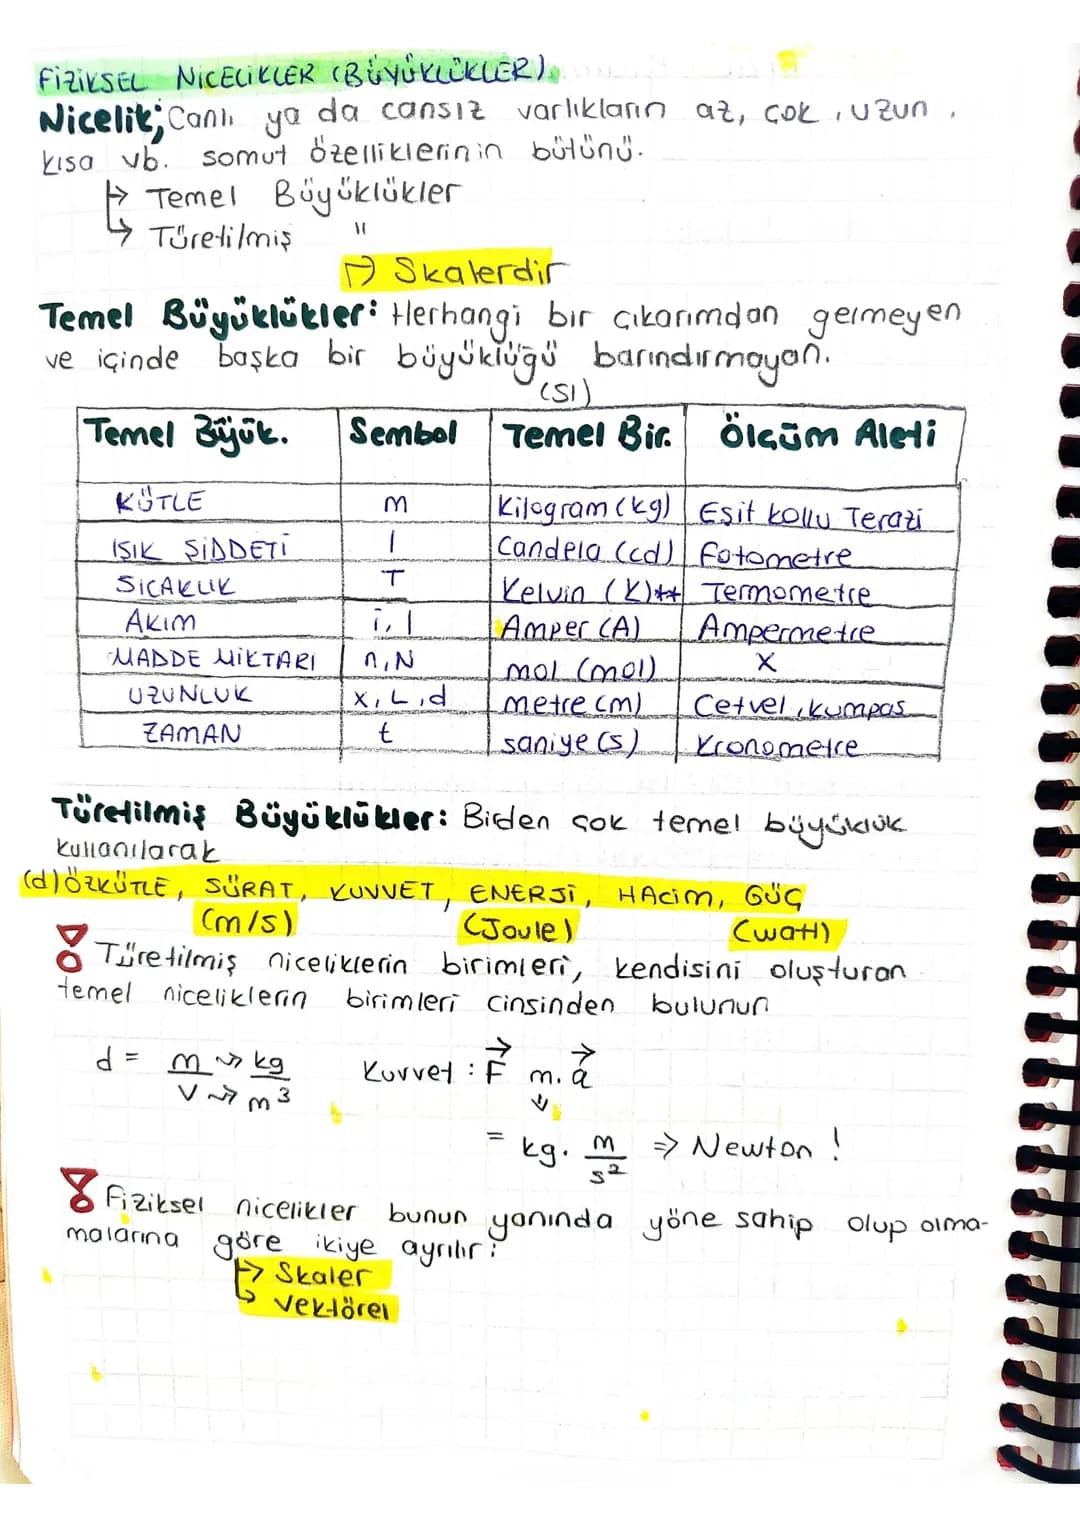 FİZİKSEL NİCELİKLER (BÜYÜKLÜKLER)
Nicelik; Canlı ya da cansız varlıkların az, çok, uzun,
kısa vb. somut özelliklerinin bütünü.
↳ Temel Büyüklükler
↳ Türetilmiş "
↱ Skalerdir
Temel Büyüklükler: Herhangi bir çıkarımdan gelmeyen
ve içinde başka bir büyüklüğü barındırmayan.
(SI)
Temel Büyük. Sembol Temel Bir. Ölçüm Aleti
KÜTLE m Kilogram (kg) Eşit kollu Terazi
IŞIK ŞİDDETİ I Candela (cd) Fotometre
SICAKLIK T Kelvin (K)** Termometre
AKIM i, I Amper (A) Ampermetre
MADDE MİKTARI n, N mol (mol) X
UZUNLUK x, L, d metre (m) Cetvel, kumpas
ZAMAN t saniye (s) Kronometre
Türetilmiş Büyüklükler: Birden çok temel büyüklük
kullanılarak
(d) ÖZKÜTLE, SÜRAT, KUVVET, ENERJİ, HACİM, GÜÇ
(m/s) (Joule) (watt)
Türetilmiş niceliklerin birimleri, kendisini oluşturan
temel niceliklerin birimleri cinsinden bulunur
d = m/V → kg/m³ Kuvvet : F m. a
= kg. m/s² ⇒ Newton !
Fiziksel nicelikler bunun yanında yöne sahip olup olma-
malarına göre ikiye ayrılır:
↳ Skaler
↳ Vektörel